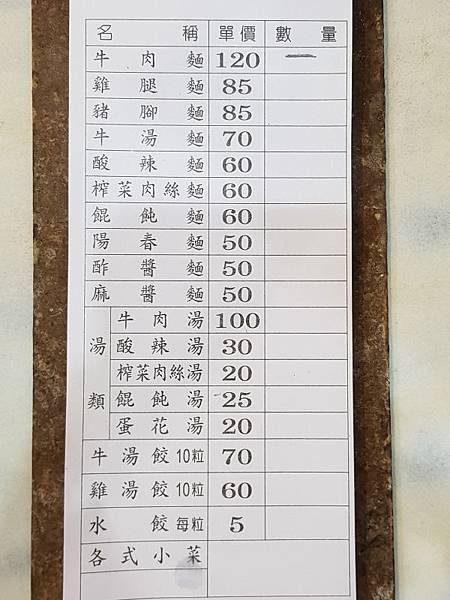 名稱 單價 數量
牛肉麵 120 一
雞腿麵 85
豬腳麵 85
牛湯麵 70
酸辣麵 60
榨菜肉絲麵 60
餛飩麵 60
陽春麵 50
酢醬麵 50
麻醬麵 50
湯類
牛肉湯 100
酸辣湯 30
榨菜肉絲湯 20
餛飩湯 25
蛋花湯 20
牛湯餃10粒 70
雞湯餃10粒 60
水餃每粒 5
各式小菜